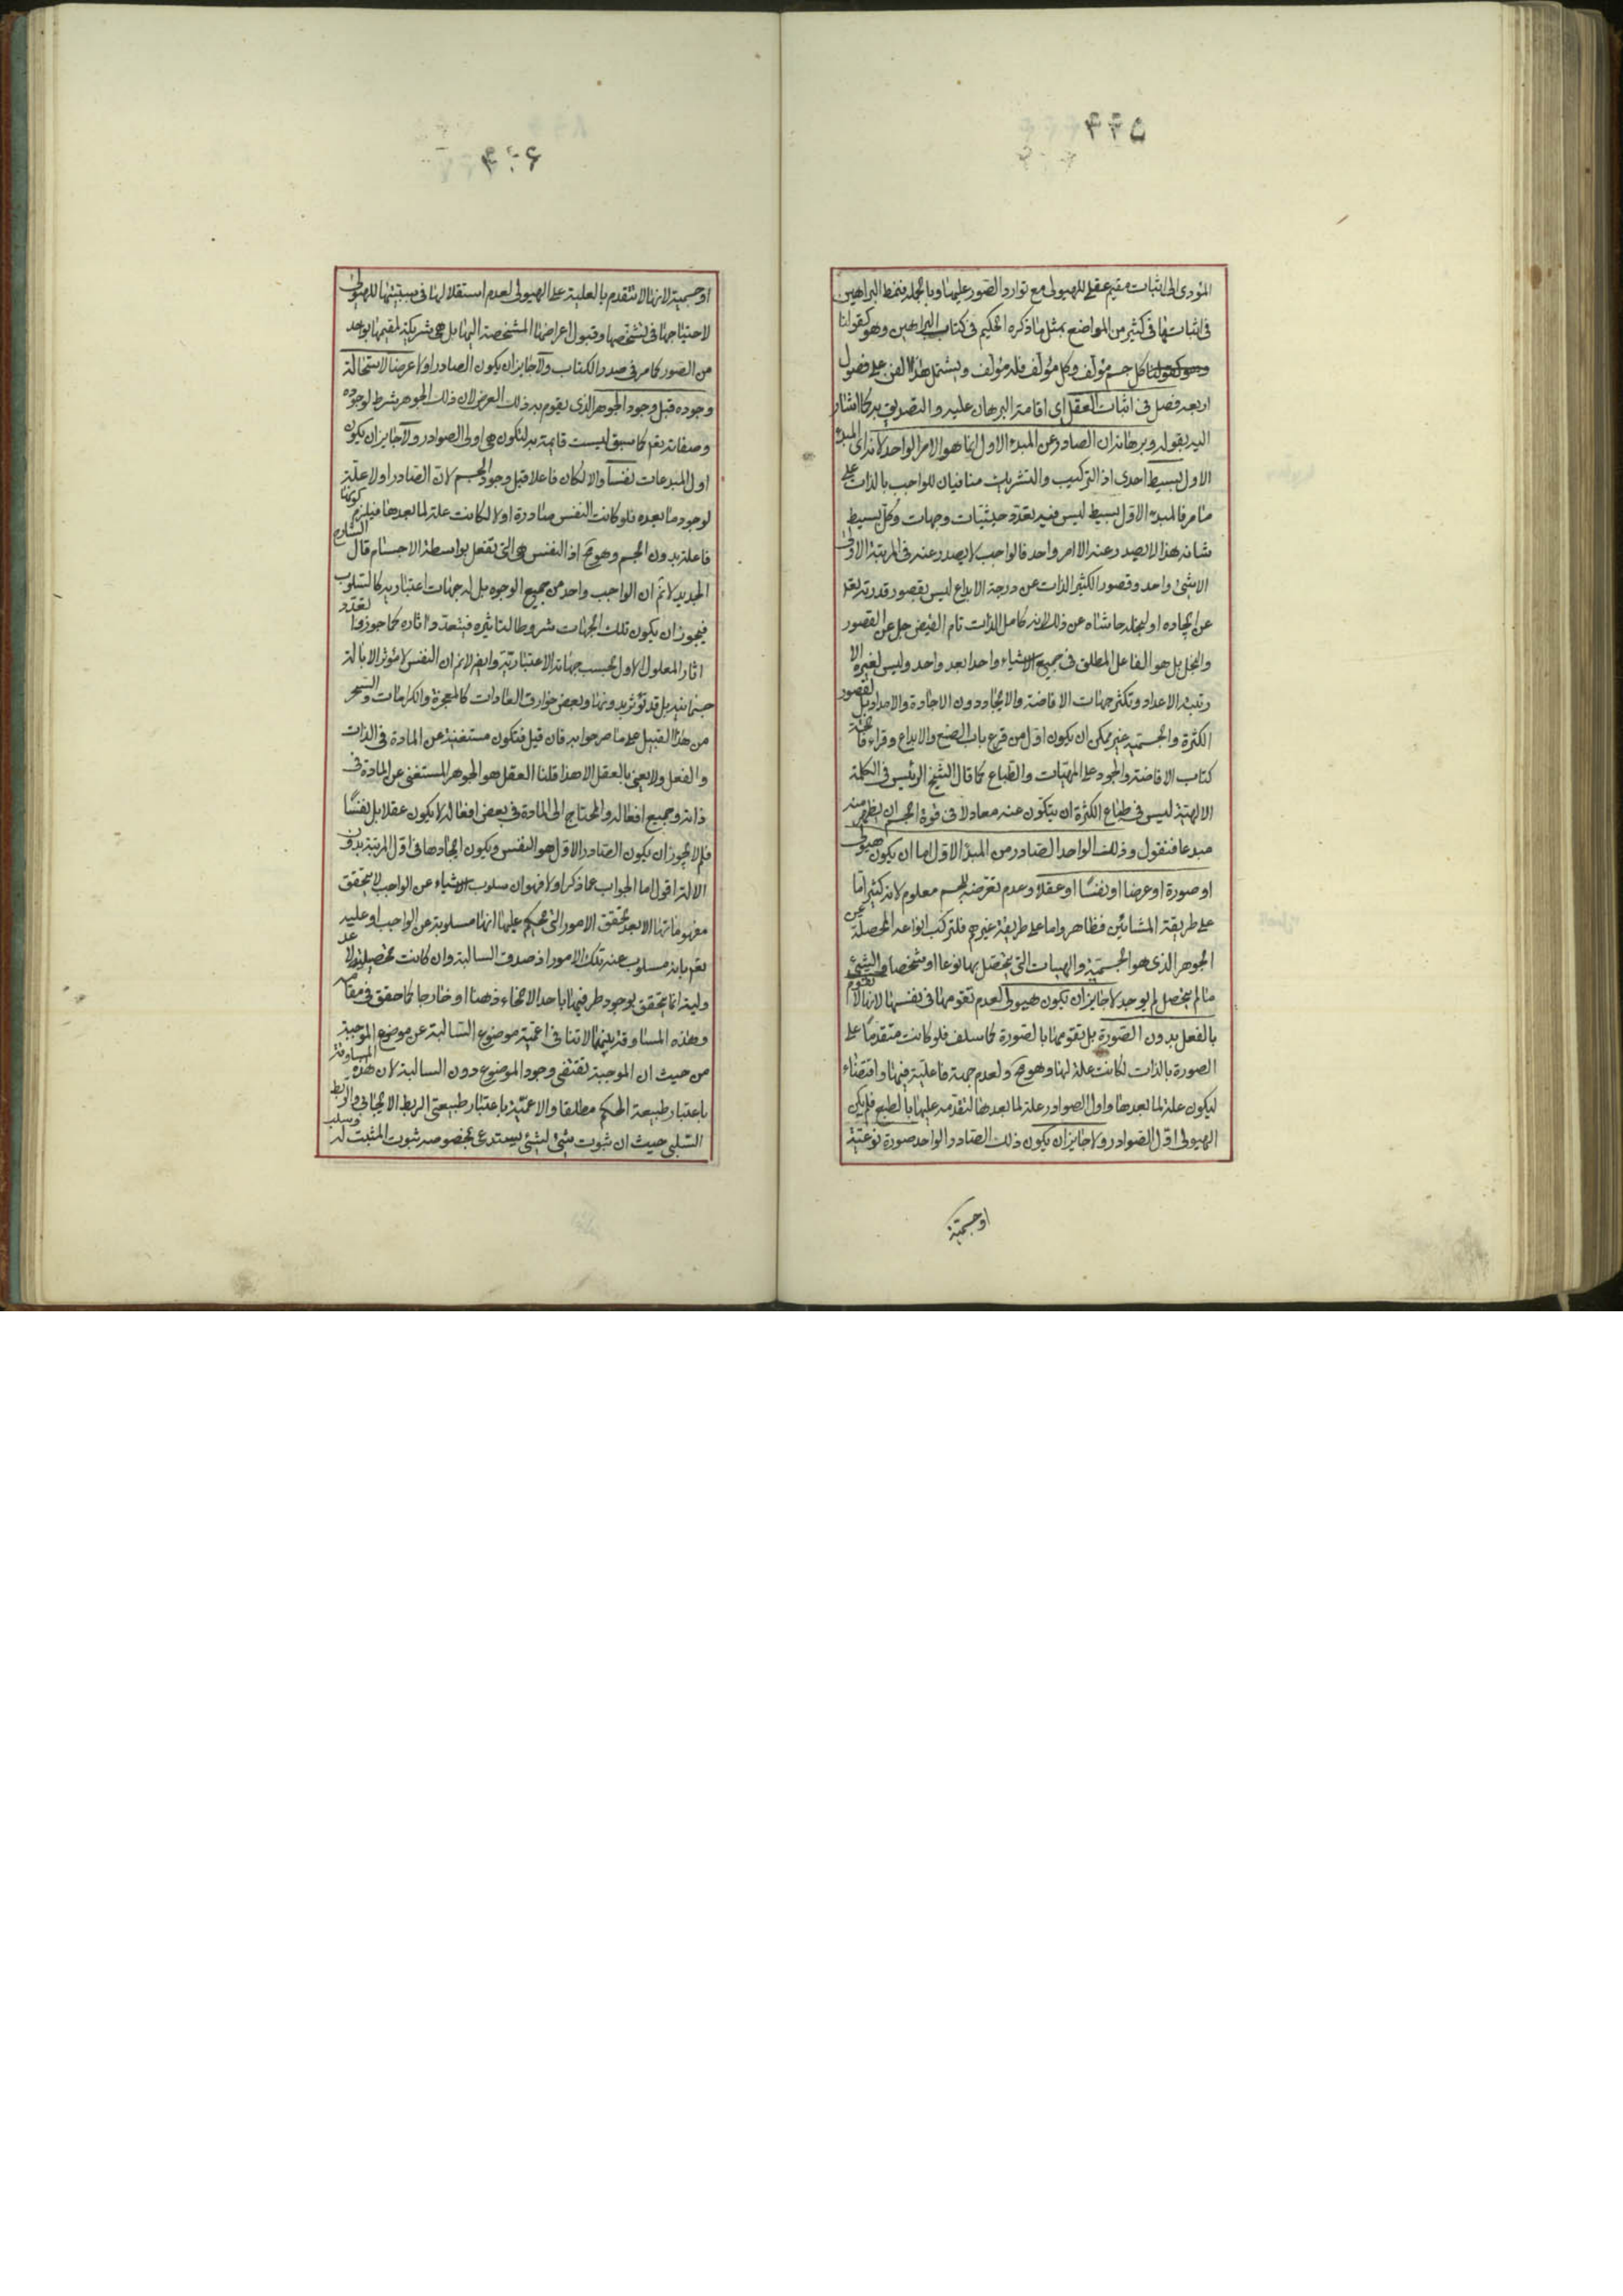 ۵۴۴
المؤدى الى اثبات مقيم عقلى للهيولى مع توارد الصور عليها وبالجملة فنمط البراهين
فى اثباتها فى كثير من المواضع بمثل ما ذكره الحكيم فى كتاب البراهين وهو كقولنا
كل جسم مؤلف وكل مؤلف فله مؤلف ويشتمل هذا الفن على فصول
اربعة فصل فى اثبات العقل اى اقامة البرهان عليه والتصديق به كما اشار
اليه بقوله وبرهانه ان الصادر عن المبدء الاول انما هو الامر الواحد لانه اى المبدء
الاول بسيط احدى اذ التركيب والتشريك منافيان للواجب بالذات على
ما مر فالمبدء الاول بسيط ليس فيه تعدد حيثيات وجهات وكل بسيط
شانه هذا لا يصدر عنه الا امر واحد فالواجب لا يصدر عنه فى المرتبة الاولى
الا شئ واحد وقصور الكثير الذات عن درجة الابداع ليس بقصور قدرته تعالى
عن ايجاده او لبخله حاشاه عن ذلك لانه كامل الذات تام الفيض جل عن القصور
والبخل بل هو الفاعل المطلق فى جميع الاشياء واحدا بعد واحد وليس لغيره الا
رتبة الاعداد وتكثر جهات الافاضة والايجاد دون الافادة والامداد بل لقصور
الكثرة والجسمية غير ممكن ان يكون اول من قرع باب الصنع والابداع وقراء فاتحة
كتاب الافاضة والجود على المهيات والطباع كما قال الشيخ الرئيس فى الكلمة
الالهية ليس فى طباع الكثرة ان يتكون عنه معا ولا فى قوة الجسم ان يظهر منه
مبدعا فنقول وذلك الواحد الصادر من المبدء الاول اما ان يكون هيولى
او صورة او عرضا او نفسا او عقلا وعدم تعرضه للجسم معلوم لانه كثير اما
على طريقة المشائين فظاهر واما على طريقة غيرهم فلتركب انواعه المحصلة عن
الجوهر الذى هو الجسمية والهيات التى يتحصل بها نوعا او شخصا والشئ
ما لم يتحصل لم يوجد لا جايز ان يكون هيولى لعدم تقومها فى نفسها لانها لا تقوم
بالفعل بدون الصورة بل تقومها بالصورة كما سلف فلو كانت متقدما على
الصورة بالذات لكانت علة لها وهو مح ولعدم جهة فاعلية فيها واقتضاء
ليكون علة لما بعدها واول الصوادر علة لما بعدها لتقدمه عليها بالطبع فلم يكن
الهيولى اول الصوادر ولا جايز ان يكون ذلك الصادر الواحد صورة نوعية
او جسمية
او جسمية لانها لا تتقدم بالعلية على الهيولى لعدم استقلالها فى سببيتها للهيولى
لاحتياجها فى تشخصها وقبول اعراضها المشخصة اليها بل هى شريكة لمقيمها بواحد
من الصور كما مر فى صدر الكتاب ولا جايز ان يكون الصادر اولا عرضا لاستحالة
وجوده قبل وجود الجوهر الذى يقوم به ذلك العرض لان ذلك الجوهر شرط لوجوده
وصفاته تعالى كما سبق ليست قائمة به لتكون هى اولى الصوادر ولا جايز ان يكون
اول المبدعات نفسا والا لكان فاعلا قبل وجود الجسم لان الصادر اولا علة
لوجود ما بعده فلو كانت النفس صادرة اولا لكانت علة لما بعدها فيلزم كونها
فاعلة بدون الجسم وهو مح اذ النفس هى التى تفعل بواسطة الاجسام قال الشارح
الجديد لا نم ان الواجب واحد من جميع الوجوه بل له جهات اعتبارية كالسلوب
فيجوز ان يكون تلك الجهات شروطا لتاثيره فيتعدد اثاره كما جوزوا تعدد
اثار المعلول الاول بحسب جهاته الاعتبارية وايضا لا نم ان النفس لا تؤثر الا بالة
جسمانية بل قد تؤثر بدونها وبعض خوارق العادات كالمعجزة والكرامات والسحر
من هذا القبيل على ما صرحوا به فان قيل فتكون مستغنية عن المادة فى الذات
والفعل ولا يعنى بالعقل الا هذا قلنا العقل هو الجوهر المستغنى عن المادة فى
ذاته وجميع افعاله والمحتاج الى المادة فى بعض افعاله لا يكون عقلا بل نفسا
فلم لا يجوز ان يكون الصادر الاول هو النفس ويكون ايجادها فى اول المرتبة بدون
الالة اقول اما الجواب عما ذكر اولا فهو ان سلوب الاشياء عن الواجب لا يتحقق
مفهوماتها الا بعد تحقق الامور التى يحكم عليها انها مسلوبة عن الواجب او عليه
تعالى بانه مسلوب عنه تلك الامور اذ صدق السالبة وان كانت
وليه انما يتحقق بوجود طرفيها باحد الانحاء ذهنا او خارجا كما حقق فى مقامه
وهذه المساوقة بينهما لا تنافى اعمية موضوع السالبة عن موضوع الموجبة
من حيث ان الموجبة تقتضى وجود الموضوع دون السالبة لان هذه المساوقة
باعتبار طبيعة الحكم مطلقا والاعمية باعتبار طبيعتى الربط الايجابى والربط
السلبى حيث ان ثبوت شئ لشئ يستدعى بخصوصه ثبوت المثبت له وسلب